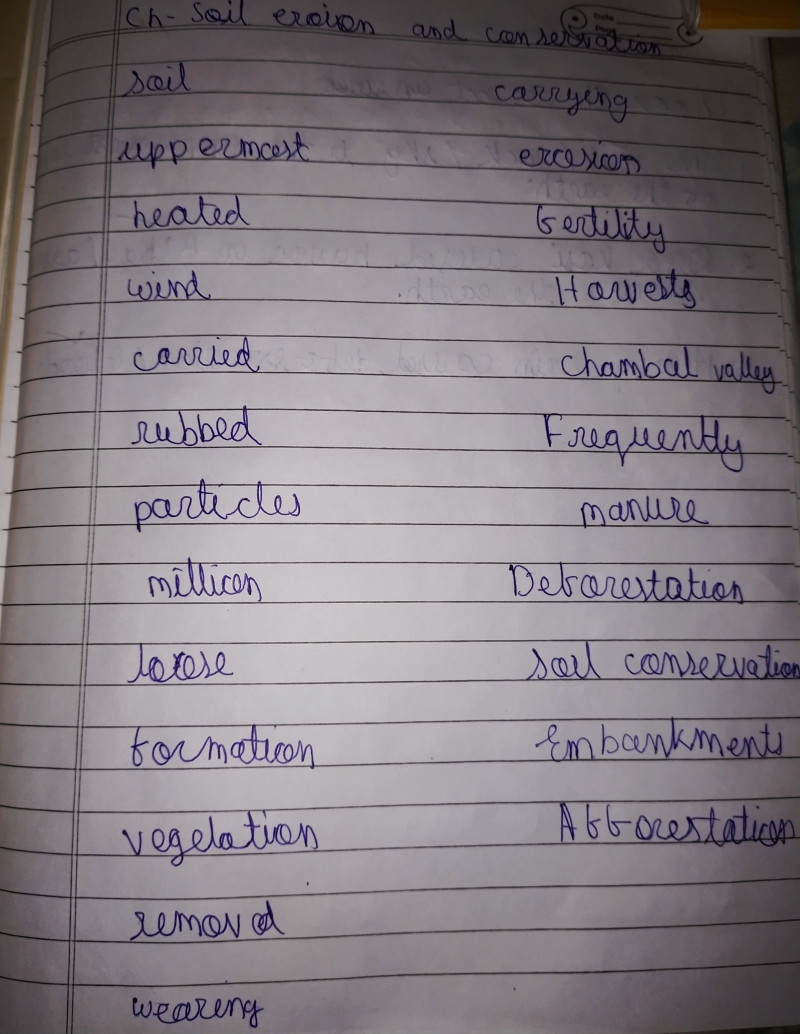 Ch- Soil eroion and conservation
soil
uppermost
heated
wind
carried
rubbed
particles
million
loose
formation
vegetation
removed
wearing
carrying
erosion
fertility
Harvests
Chambal valley
Frequently
manure
Deforestation
Soil conservation
Embankments
Afforestation